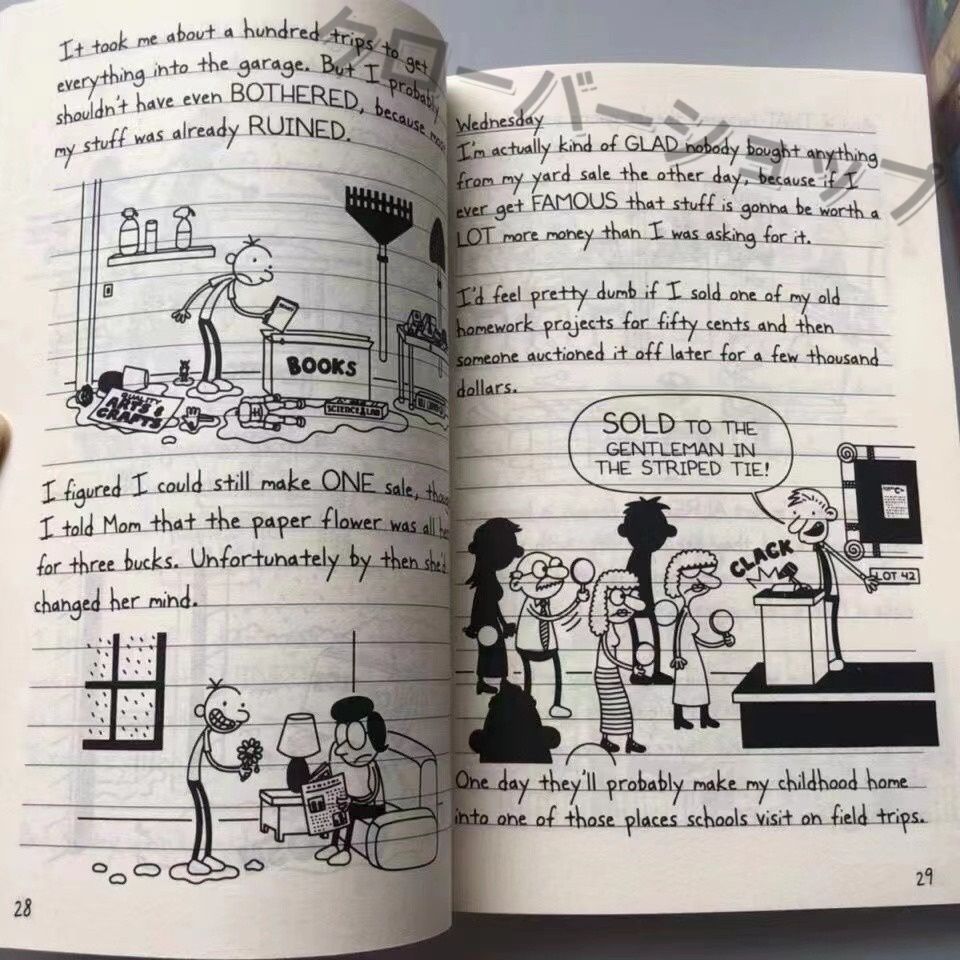 It took me about a hundred trips to get
everything into the garage. But I probably
shouldn't have even BOTHERED, because
my stuff was already RUINED.
BOOKS
QUALITY
ARTS &
CRAFTS
SCIENCE LAB
I figured I could still make ONE sale,
I told Mom that the paper flower was all
for three bucks. Unfortunately by then she'd
changed her mind.
28
Wednesday
I'm actually kind of GLAD nobody bought anything
from my yard sale the other day, because if I
ever get FAMOUS that stuff is gonna be worth a
LOT more money than I was asking for it.
I'd feel pretty dumb if I sold one of my old
homework projects for fifty cents and then
someone auctioned it off later for a few thousand
dollars.
SOLD TO THE
GENTLEMAN IN
THE STRIPED TIE!
CLACK
LOT 42
One day they'll probably make my childhood home
into one of those places schools visit on field trips.
29
クローバーショップ